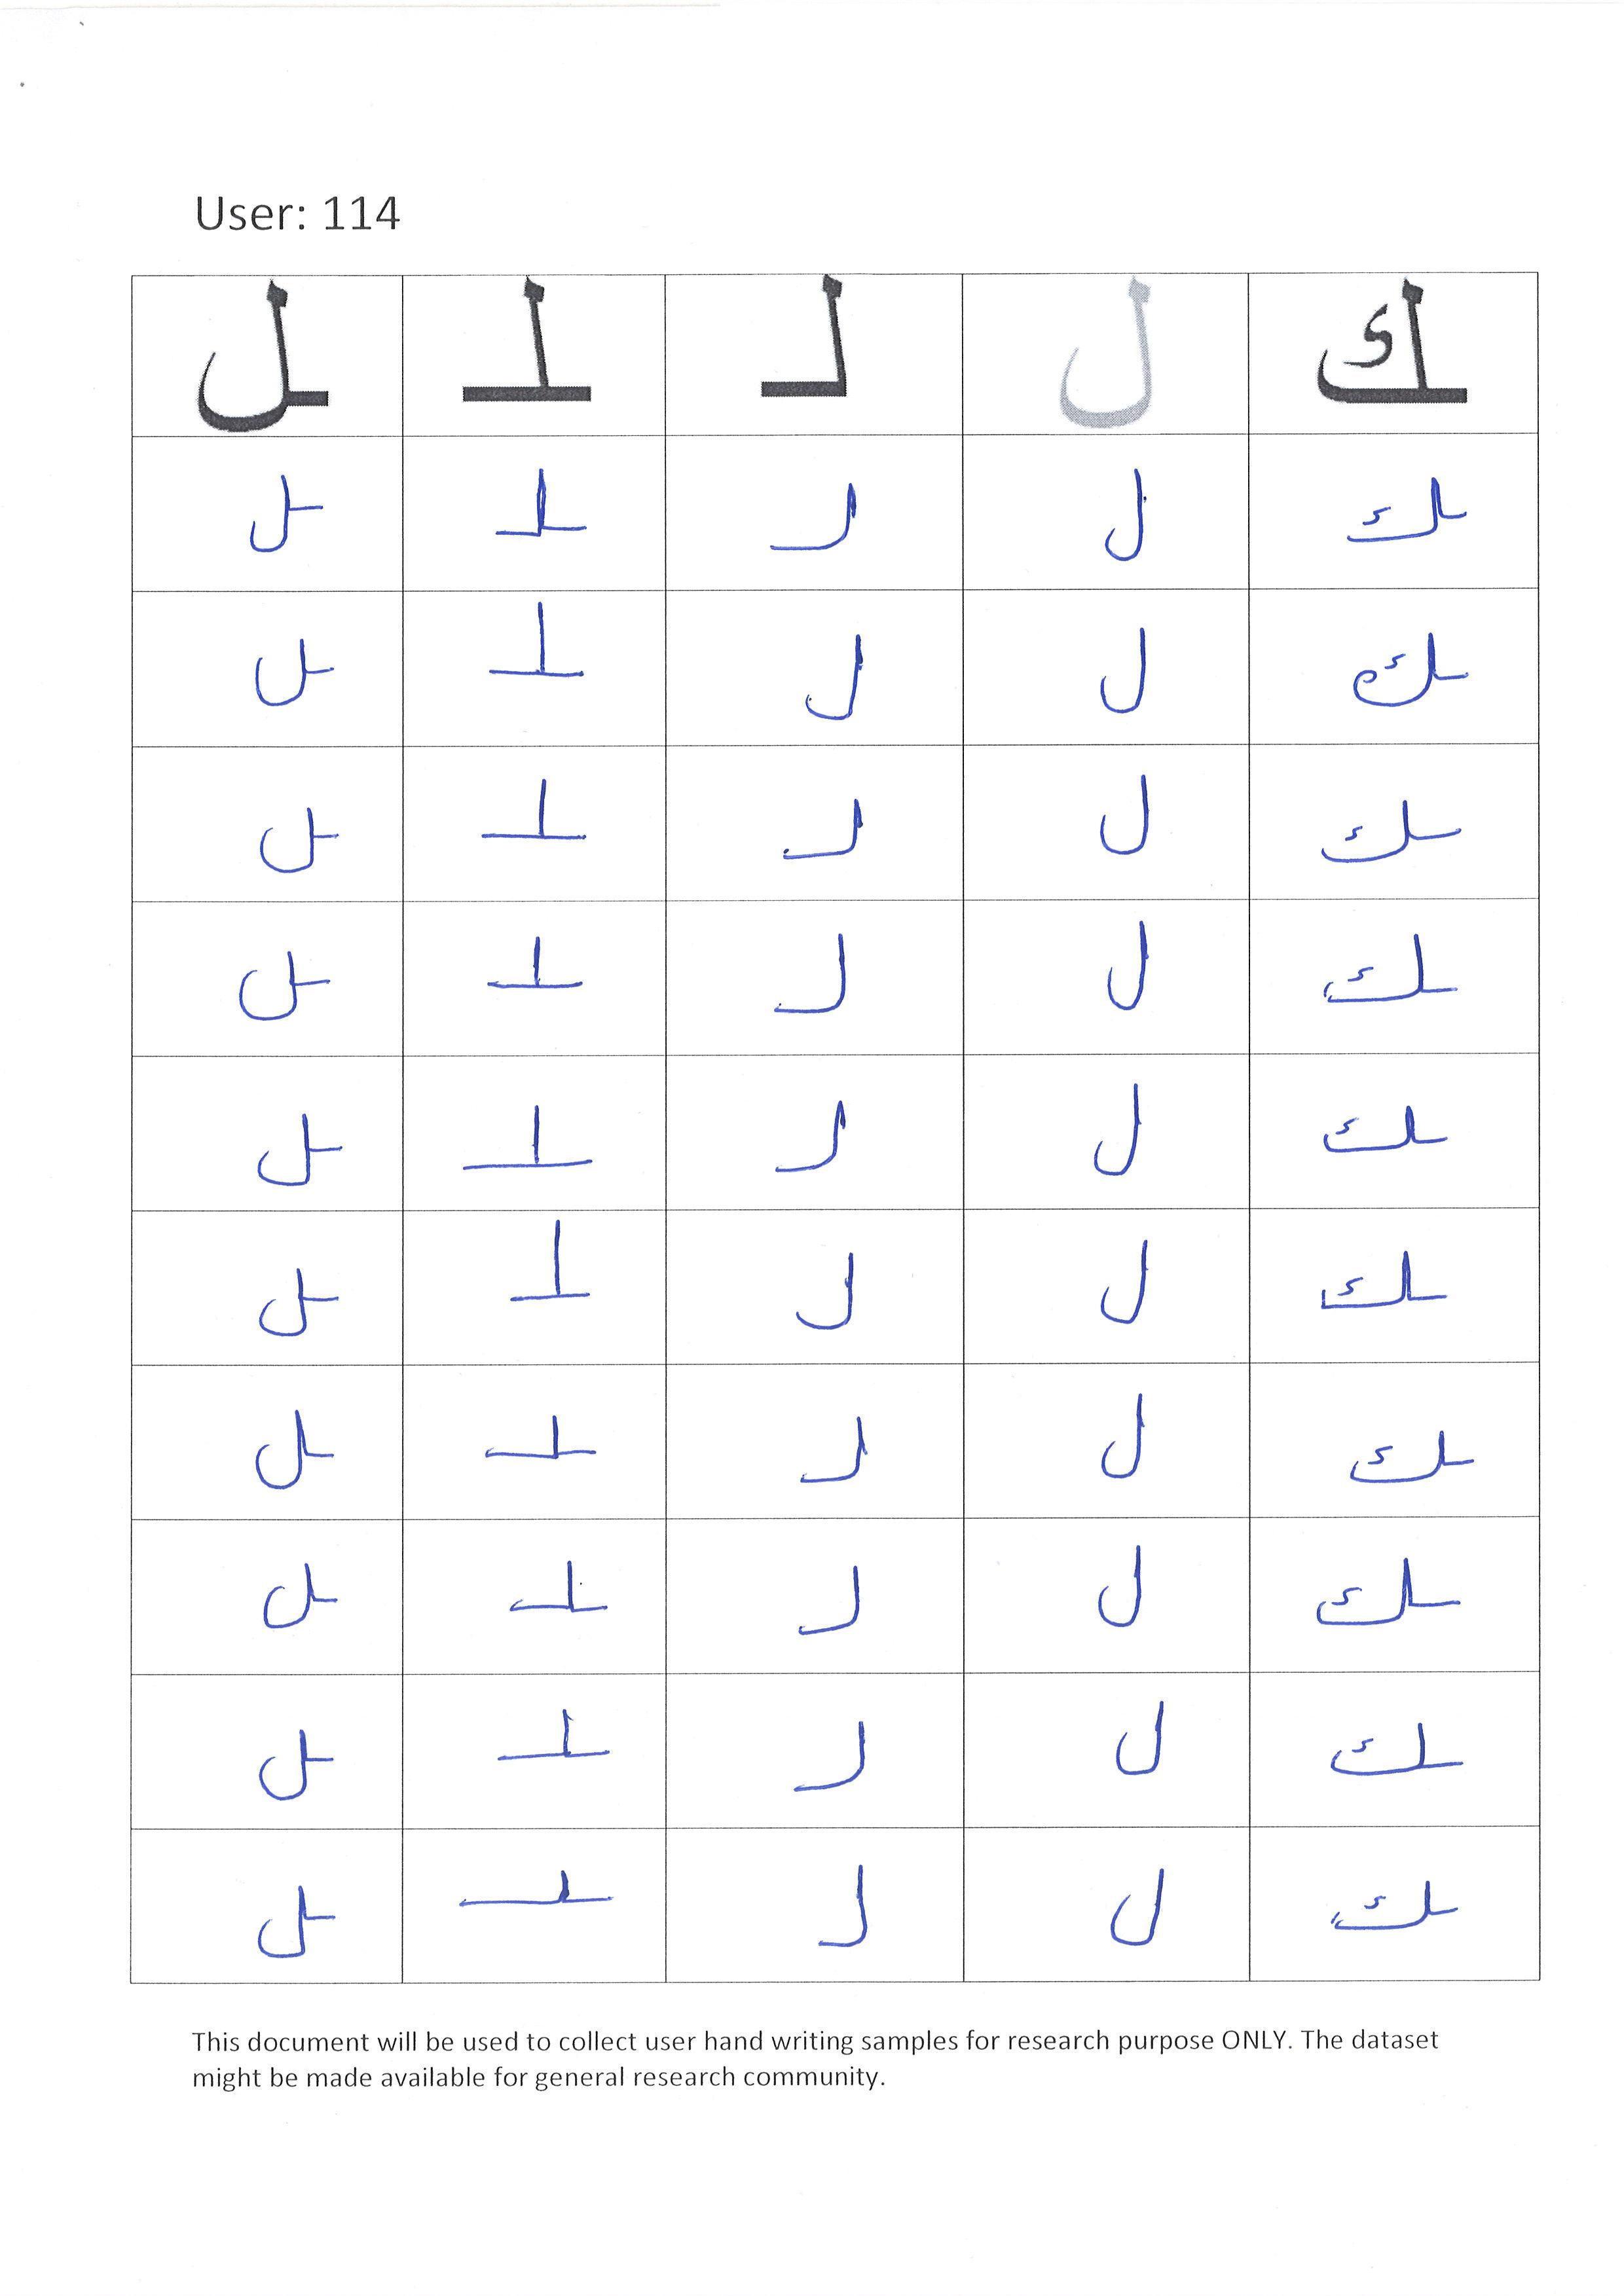 User: 114
ـل ـلـ لـ ل ـك
ـل ـلـ لـ ل ـك
ـل ـلـ ل ل ـك
ـل ـلـ لـ ل ـك
ـل ـلـ لـ ل ـك
ـل ـلـ لـ ل ـك
ـل ـلـ ل ل ـك
ـل ـلـ لـ ل ـك
ـل ـلـ لـ ل ـك
ـل ـلـ لـ ل ـك
ـل ـلـ لـ ل ـك
This document will be used to collect user hand writing samples for research purpose ONLY. The dataset
might be made available for general research community.